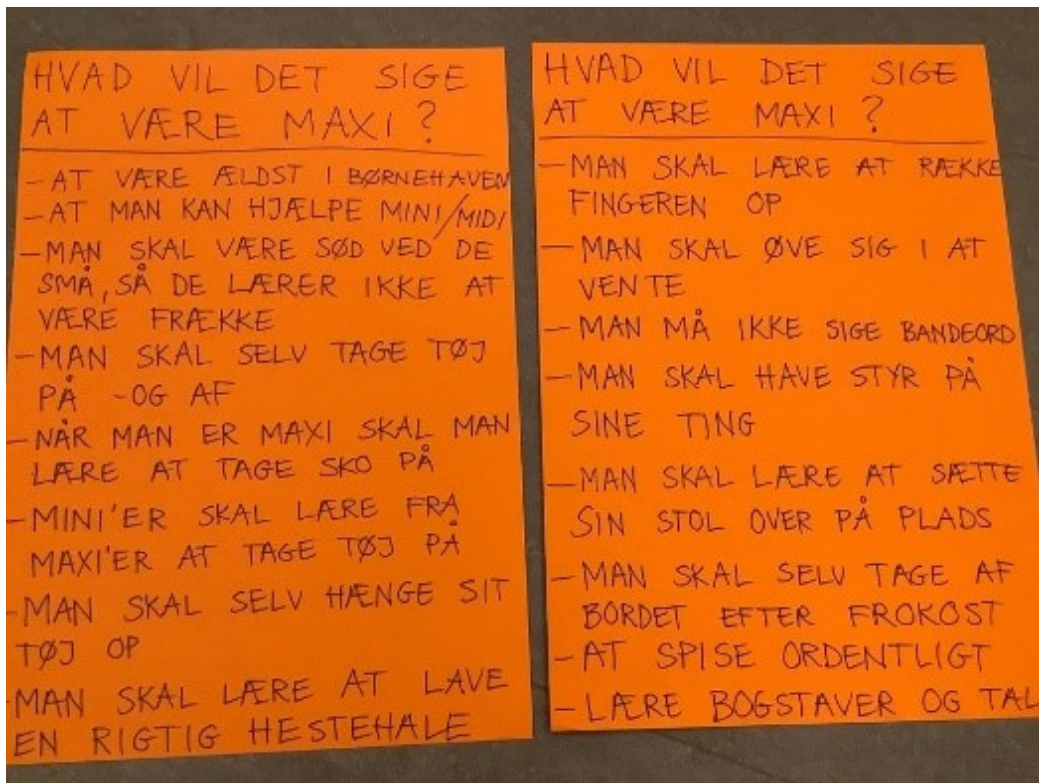 HVAD VIL DET SIGE
AT VÆRE MAXI?
-AT VÆRE ÆLDST I BØRNEHAVEN
-AT MAN KAN HJÆLPE MINI/MIDI
-MAN SKAL VÆRE SØD VED DE
SMÅ, SÅ DE LÆRER IKKE AT
VÆRE FRÆKKE
-MAN SKAL SELV TAGE TØJ
PÅ -OG AF
-NÅR MAN ER MAXI SKAL MAN
LÆRE AT TAGE SKO PÅ
-MINI'ER SKAL LÆRE FRA
MAXI'ER AT TAGE TØJ PÅ
-MAN SKAL SELV HÆNGE SIT
TØJ OP
-MAN SKAL LÆRE AT LAVE
EN RIGTIG HESTEHALE
HVAD VIL DET SIGE
AT VÆRE MAXI?
-MAN SKAL LÆRE AT RÆKKE
FINGEREN OP
-MAN SKAL ØVE SIG I AT
VENTE
-MAN MÅ IKKE SIGE BANDEORD
-MAN SKAL HAVE STYR PÅ
SINE TING
-MAN SKAL LÆRE AT SÆTTE
SIN STOL OVER PÅ PLADS
-MAN SKAL SELV TAGE AF
BORDET EFTER FROKOST
-AT SPISE ORDENTLIGT
-LÆRE BOGSTAVER OG TAL